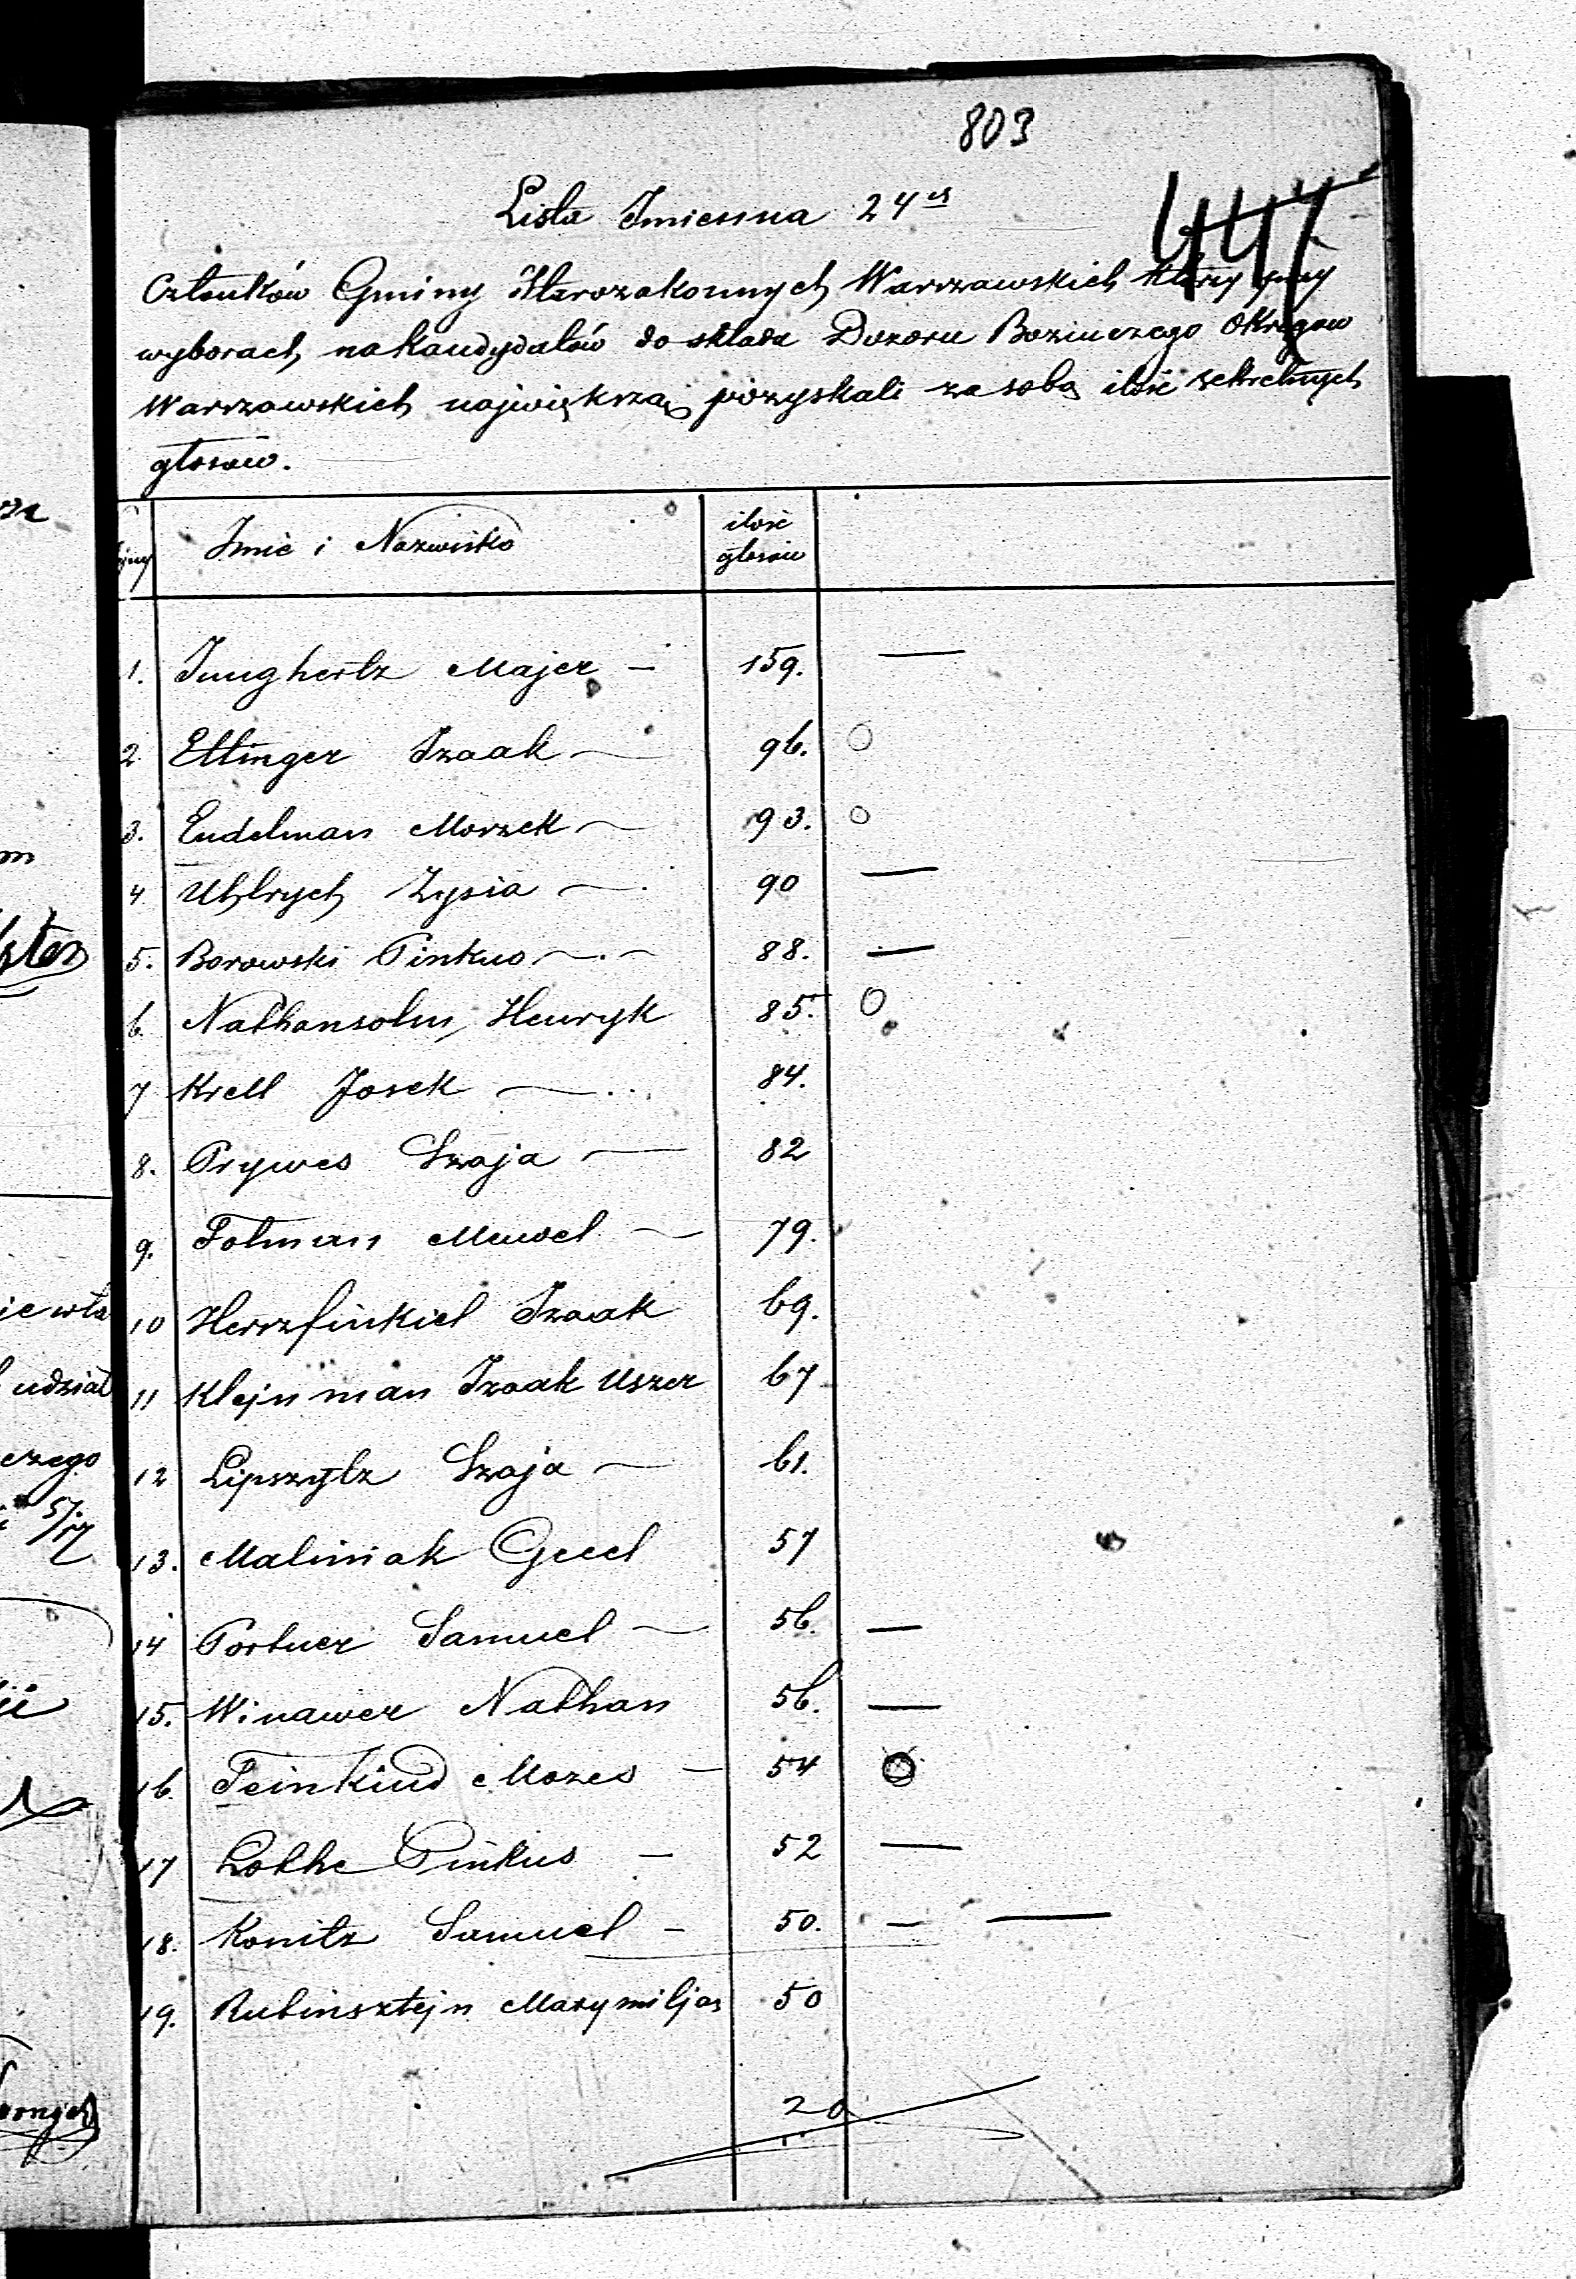 803
Lista Imienna 24ch
447
Członków Gminy Starozakonnych Warszawskich którzy przy
wyborach na Kandydatów do składu Dozoru Bozniczego Okręgow
Warszawskich największą pozyskali za sobą ilość sekretnych
głosów.
Imie i Nazwisko ilość głosów
1. Junghertz Majer — 159. —
2 Ettinger Izaak — 96. O
3. Eudelman Moszek — 93. O
4 Uhlrych Zysia — 90 —
5. Borowski Pinkus — 88. —
6. Nathansohn Henryk 85. O
7 Krell Josek — 84.
8. Prywes Szaja — 82
9. Fotman Mendel — 79.
10 Herszfinkiel Izaak 69.
11 Klejnman Izaak Uszer 67
12 Lipszytz Szaja — 61.
13. Maliniak Gecel 57
14 Portner Samuel — 56. —
15. Winawer Nathan 56. —
16. Feinkind Mozes — 54 O
17 Lothe Pinkus — 52 —
18. Konitz Samuel — 50. — —
19. Rubinsztejn Maxymiljan 50
20